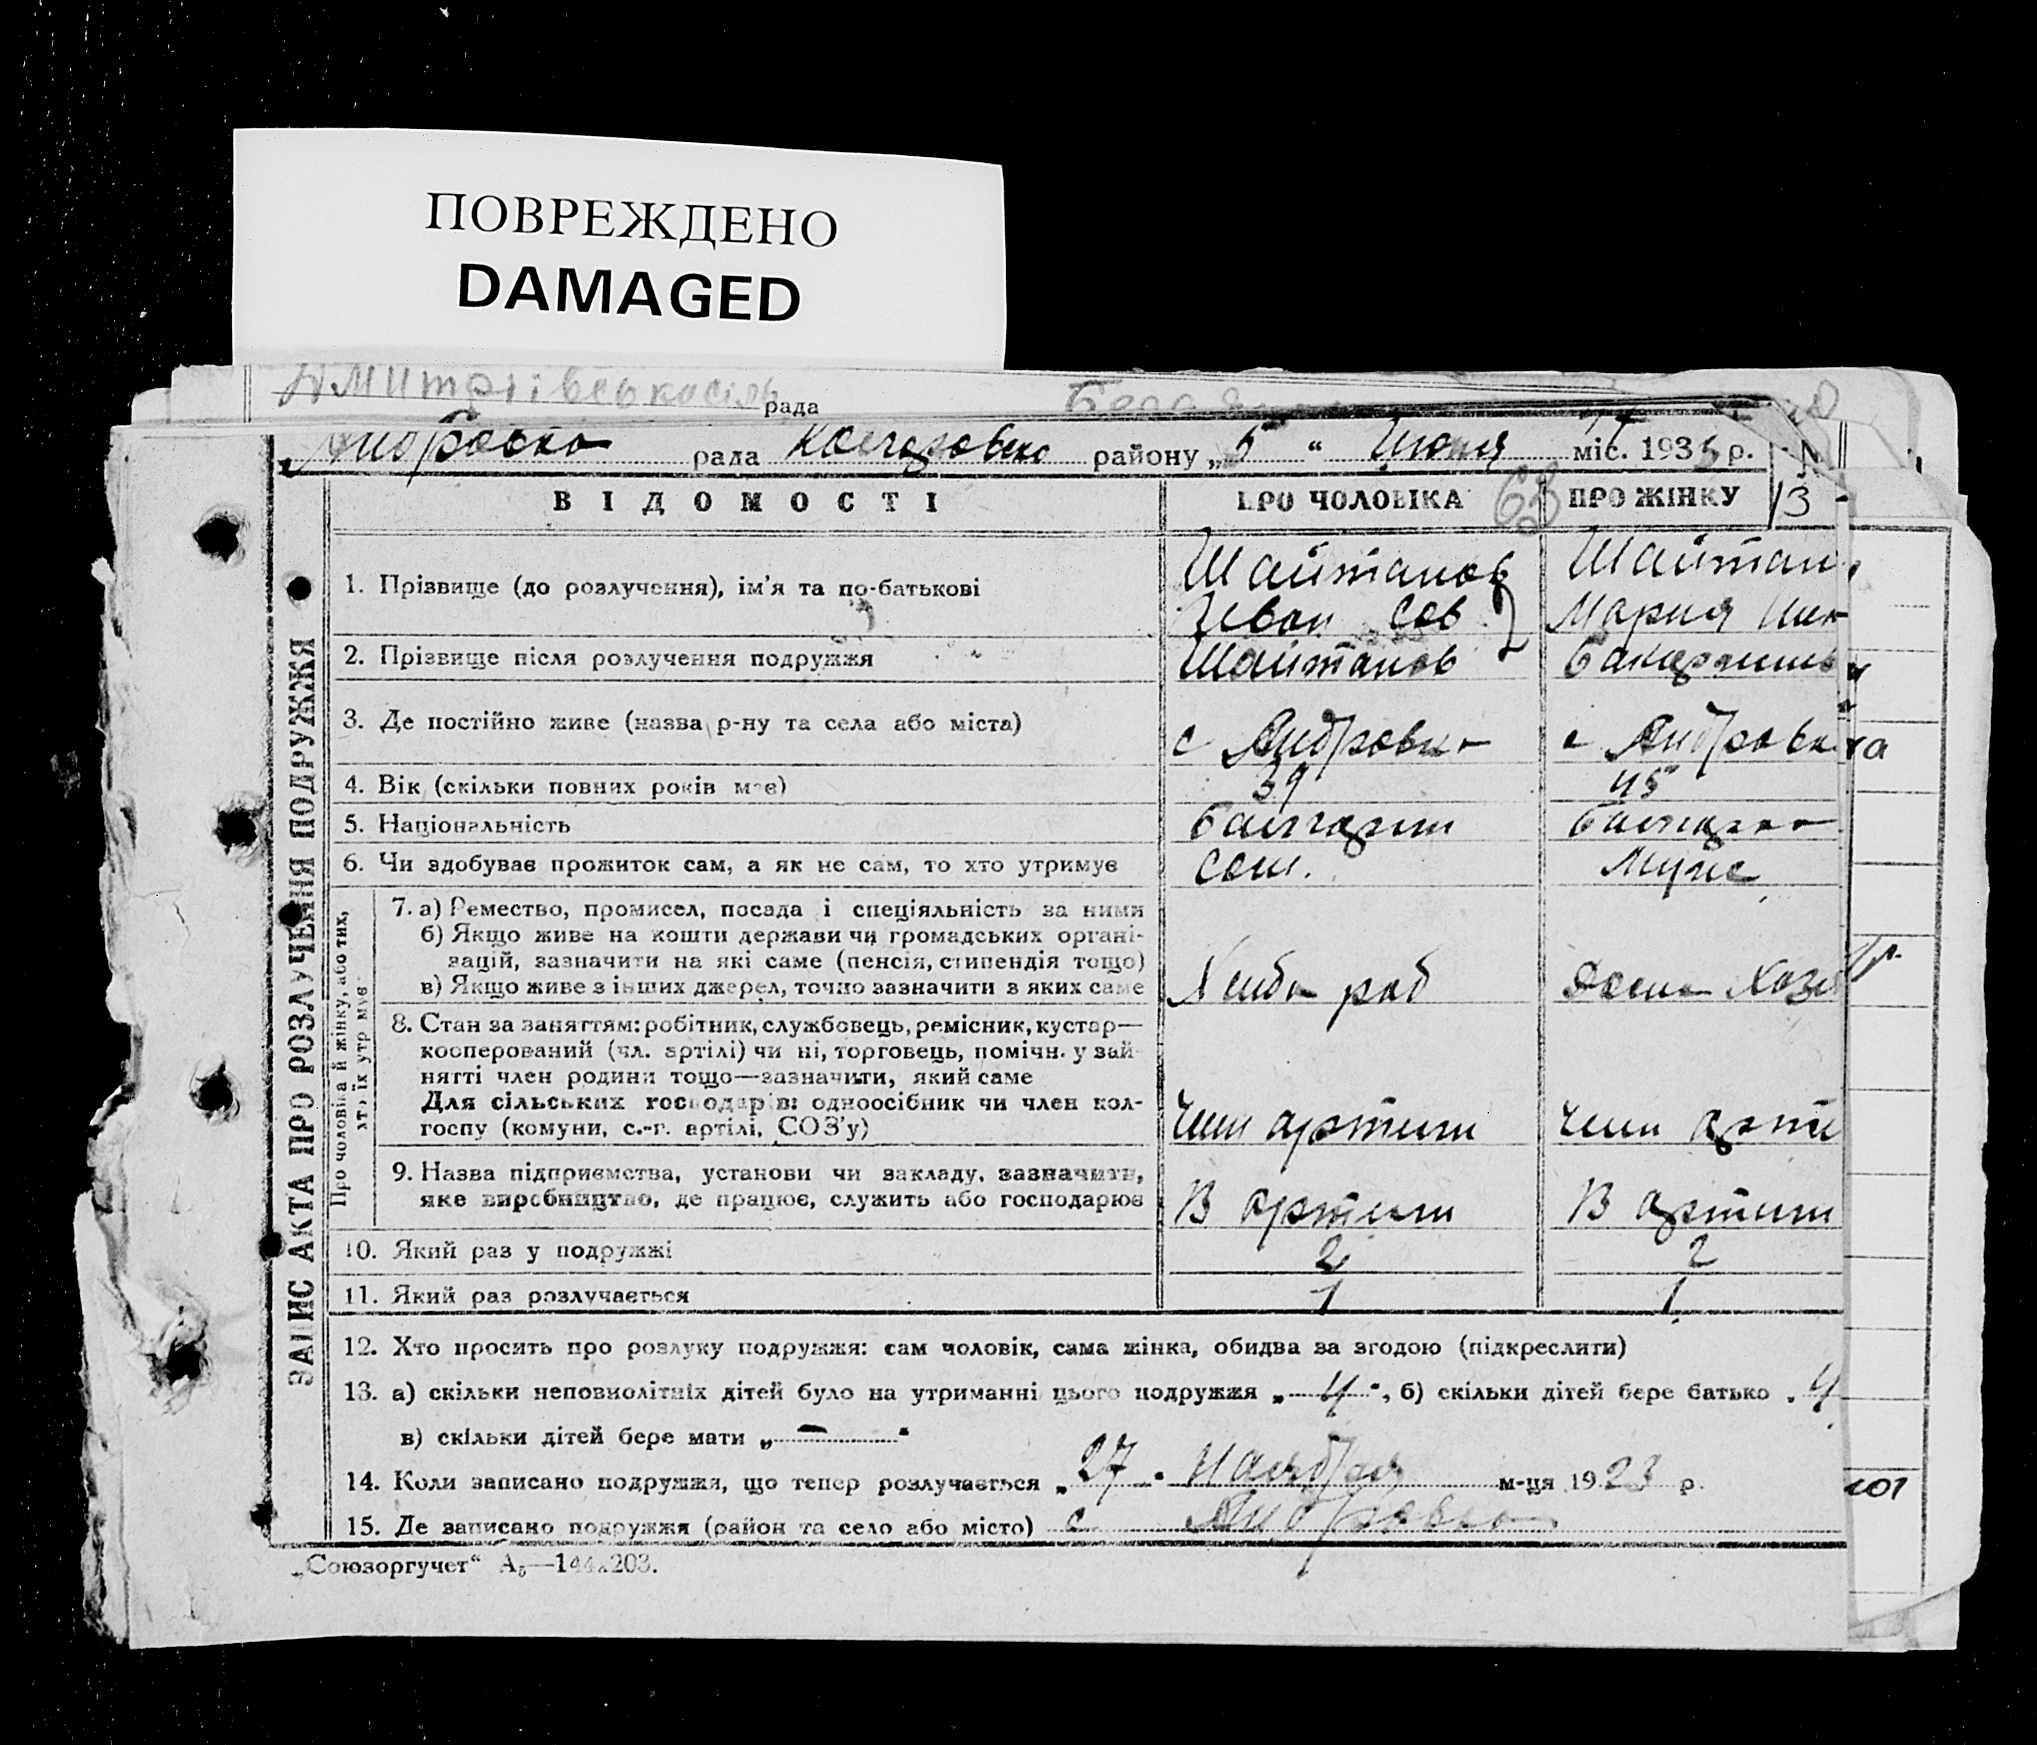 ПОВРЕЖДЕНО
DAMAGED
рада
рада районy „5 “ Июня міс. 1935 р. N
ВІДОМОСТІ ПРО ЧОЛОВІКА 63 ПРО ЖІНКУ 13
ЗАПИС АКТА ПРО РОЗЛУЧЕННЯ ПОДРУЖЖЯ
1. Прізвище (до розлучення), ім'я та по-батькові
Шайтанов Шайтан
Иван Сав Мария Ник
2. Прізвище після розлучення подружжя Шайтанов
3. Де постійно живе (назва р-ну та села або міста) с Андровка с Андровка
4. Вік (скільки повних років має) 39 45
5. Національність болгарин болгарка
6. Чи здобуває прожиток сам, а як не сам, то хто утримує сам. Муже
Про чоловіка й жінку, або тих, хто їх утримує
7. а) Ремество, промисел, посада і спеціяльність за ними
б) Якщо живе на кошти держави чи громадських органі-
зацій, зазначити на які саме (пенсія, стипендія тощо)
в) Якщо живе з інших джерел, точно зазначити з яких саме
Хлиб роб Дома Хозя
8. Стан за заняттям: робітник, службовець, ремісник, кустар—
кооперований (чл. артілі) чи ні, торговець, помічн. у зай-
нятті член родини тощо—зазначити, який саме
Для сільських господарів: одноосібник чи член кол-
госпу (комуни, с.-г. артілі, СОЗ'у) член артили член арти
9. Назва підприємства, установи чи закладу, зазначити,
яке виробництво, де працює, служить або господарює В артили В артили
10. Який раз у подружжі 2 2
11. Який раз розлучається 1 1
12. Хто просить про розлуку подружжя: сам чоловік, сама жінка, обидва за згодою (підкреслити)
13. а) скільки неповнолітніх дітей було на утриманні цього подружжя „ 4 “, б) скільки дітей бере батько „ 4
в) скільки дітей бере мати „ — “
14. Коли записано подружжя, що тепер розлучається „ 27 “ Наября м-ця 1923 р.
15. Де записано подружжя (район та село або місто) с Андровка
„Союзоргучет“ А₅—144х203.